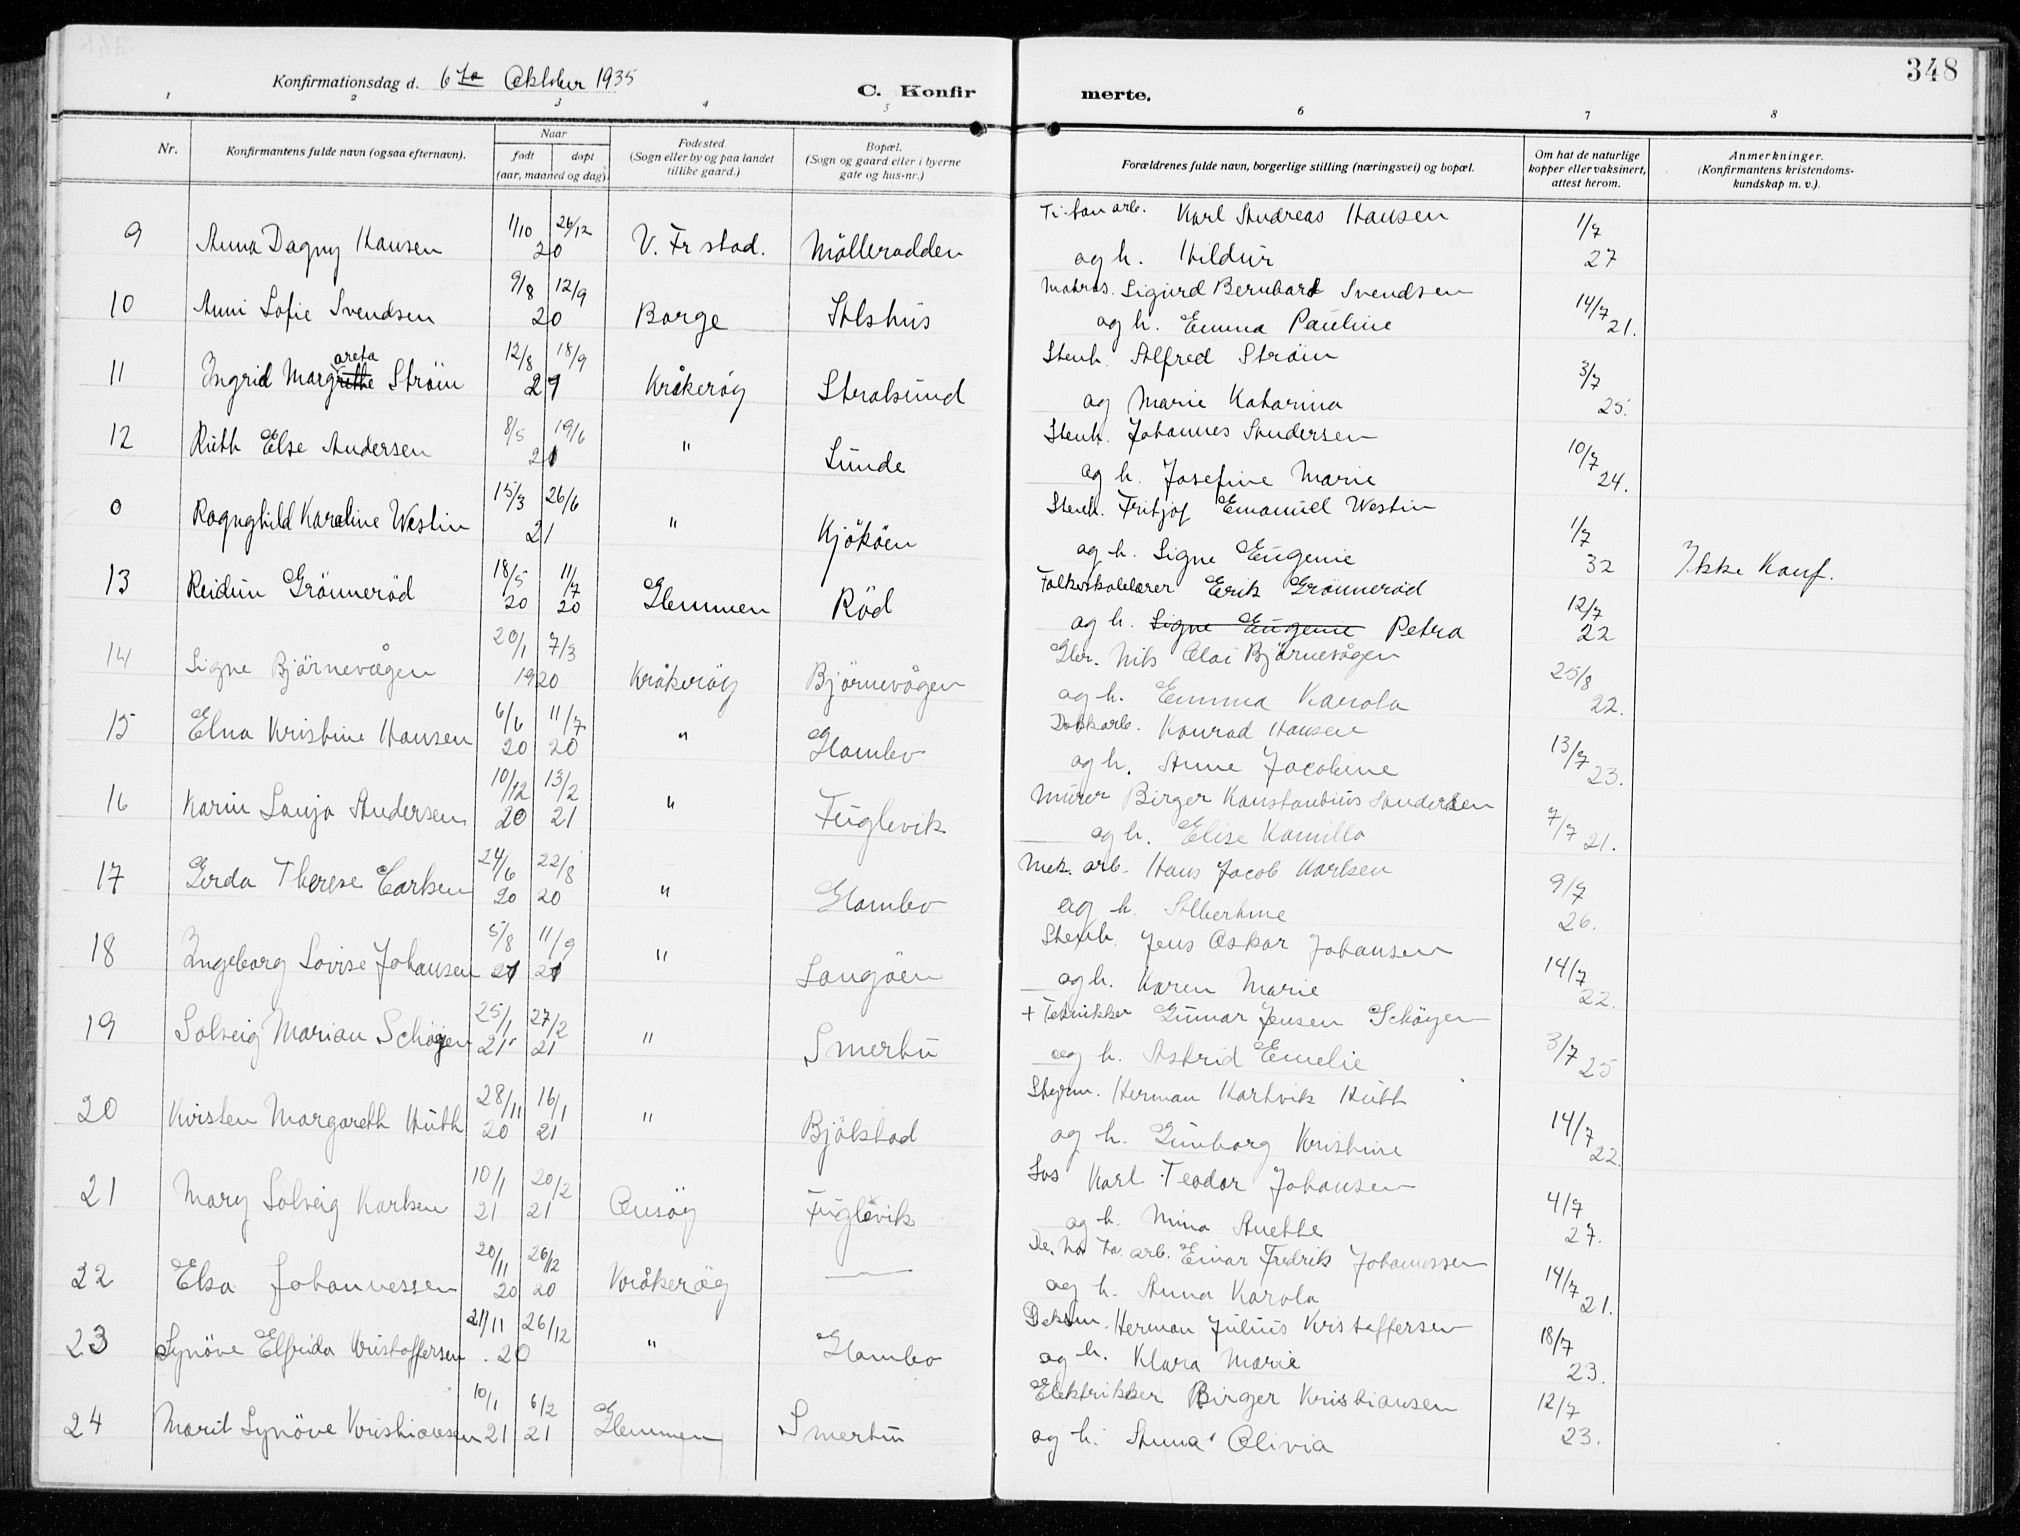 348
Konfirmationsdag d. 6te Oktober 1935
C. Konfirmerte.
1 2 3 4 5 6 7 8
Nr. Konfirmantens fulde navn (ogsaa efternavn). Naar født døpt (aar, maaned og dag) Fødested. (Sogn eller by og paa landet tillike gaard.) Bopæl. (Sogn og gaard eller i byerne gate og hus-nr.) Forældrenes fulde navn, borgerlige stilling (næringsvei) og bopæl. Om hat de naturlige kopper eller vaksinert, attest herom. Anmerkninger. (Konfirmantens kristendomskundskap m. v.).
9 Anna Dagny Hansen 1/10 26/12 20 V. Fr stad. Mölleradden Titan arb. Karl Andreas Hansen 1/7
og h. Hildur 27
10 Anni Sofie Svendsen 9/8 12/9 20 Borge Alshus Matros. Sigurd Bernhard Svendsen 14/7
og h. Emma Pauline 21.
11 Ingrid Margareta Ström 12/8 18/9 21 Kråkeröy Stralsund Stenh. Alfred Ström 3/7
og Marie Katarina 25.
12 Ruth Else Andersen 8/5 19/6 21 " Lunde Stenh. Johannes Andersen 10/7
og h. Josefine Marie 24.
0 Ragnghild Karoline Westin 15/3 26/6 21 " Kjököen Stenh. Fritjof Emanuel Westin 1/7
og h. Signe Eugenie 32 Ikke Konf.
13 Reidun Grönneröd 18/5 20 11/7 20 Glemmen Röd Folkeskolelærer Erik Grönneröd 12/7
og h. Signe Eugenie Petra 22
14 Signe Björnevågen 20/1 7/3 1920 Kråkeröy Björnevågen Gbr. Nils Olai Björnevågen 25/8
og h. Emma Karola 22.
15 Elna Kristine Hansen 6/6 20 11/7 20 " Glombo Dokkarb. Konrad Hansen 13/7
og h. Anne Jacobine 23.
16 Karin Sonja Andersen 10/12 20 13/2 21 " Fuglevik Murer Birger Konstantius Andersen 7/7
og h. Elise Kamilla 21.
17 Gerda Therese Carlsen 24/6 20 22/8 20 " Glombo Mek. arb. Hans Jacob Karlsen 9/7
og h. Albertine 26.
18 Ingeborg Lovise Johansen 5/8 21 11/9 21 " Langöen Stenh. Jens Oskar Johansen 14/7
og h. Karen Marie 22.
19 Solveig Marian Schöyen 25/1 21 27/2 21 " Smertu + Tekniker Gunnar Jensen Schöyen 3/7
og h. Astrid Emelie 25
20 Kirsten Margareth Huth 28/11 20 16/1 21 " Bjölstad Styrm. Herman Hartvik Huth 14/7
og h. Gunborg Kristine 22.
21 Mary Solveig Karlsen 10/1 21 20/2 21 Onsöy Fuglevik Karl Teodor Johansen 4/7
og h. Mina Anette 27.
22 Elsa Johannessen 20/11 20 26/12 20 Kråkeröy — De. No. Fa. arb. Einar Fredrik Johannessen 14/7
og h. Anna Karola 21.
23 Synöve Elfrida Kristoffersen 21/11 26/12 20 " Glombo Herman Julius Kristoffersen 18/7
og h. Klara Marie 23.
24 Marit Synöve Kristiansen 10/1 21 6/2 21 Glemmen Smertu Elektrikker Birger Kristiansen 12/7
og h. Anna Olivia 23.